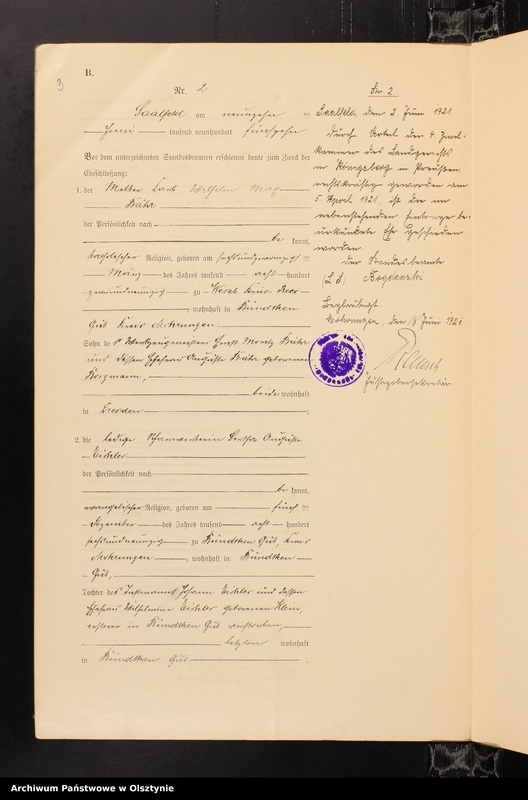 B.
3
Nr. 2
Saalfeld am neunzehn ten
Juni tausend neunhundert fünfzehn
Vor dem unterzeichneten Standesbeamten erschienen heute zum Zweck der
Eheschließung:
1. der Melker Wilhelm Max
der Persönlichkeit nach
be kannt,
katholischer Religion, geboren am sechsundzwanzigs ten
März des Jahres tausend acht hundert
zweiundneunzig zu Kreis
, wohnhaft in Kündtken
Gut Kreis Mohrungen
Sohn des Moritz
und dessen Ehefrau Auguste geborenen
beide wohnhaft
in Dresden .
2. die ledige Bertha Auguste
der Persönlichkeit nach
be kannt,
evangelischer Religion, geboren am fünf ten
Dezember des Jahres tausend acht hundert
sechsundneunzig zu Kündtken Gut, Kreis
Mohrungen , wohnhaft in Kündtken
Gut,
Tochter des Instmanns Johann und dessen
Ehefrau Wilhelmine geborenen Klein,
ersterer in Kündtken Gut verstorben,
letztere wohnhaft
in Kündtken Gut .
Nr. 2
Saalfeld, den 2. Juni 1921
Durch Urteil der 4. Zivil-
kammer des Landgerichts
in Königsberg in Preußen
rechtskräftig geworden am
5. April 1921, ist die im
nebenstehenden Eintrage be-
urkundete Ehe geschieden
worden
der Standesbeamte
(L. S.) Bogdanski
Beglaubigt
Mohrungen, den Juni 1921
Justizobersekretär
Archiwum Państwowe w Olsztynie